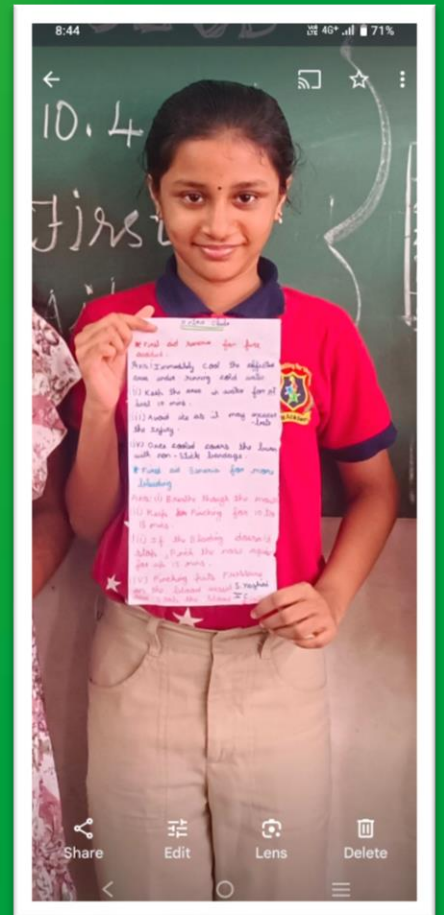 8:44
4G+ 71%
10.4
First
Ai
* First aid for fire
Ans: Immediately cool the affected
area under running cold water
ii) Keep the area in water for at
least 10 mins.
iii) Avoid ice as it may
the injury.
iv) Once cooled covers the burn
with non-stick bandage.
* First aid for nose
bleeding
Ans: i) Breathe through the mouth
ii) Keep Pinching for 10 to
15 mins.
iii) If the Bleeding doesn't
stop, Pinch the nose again
for 15 mins.
iv) Pinching Puts
on the blood vessel
the blood
Share Edit Lens Delete